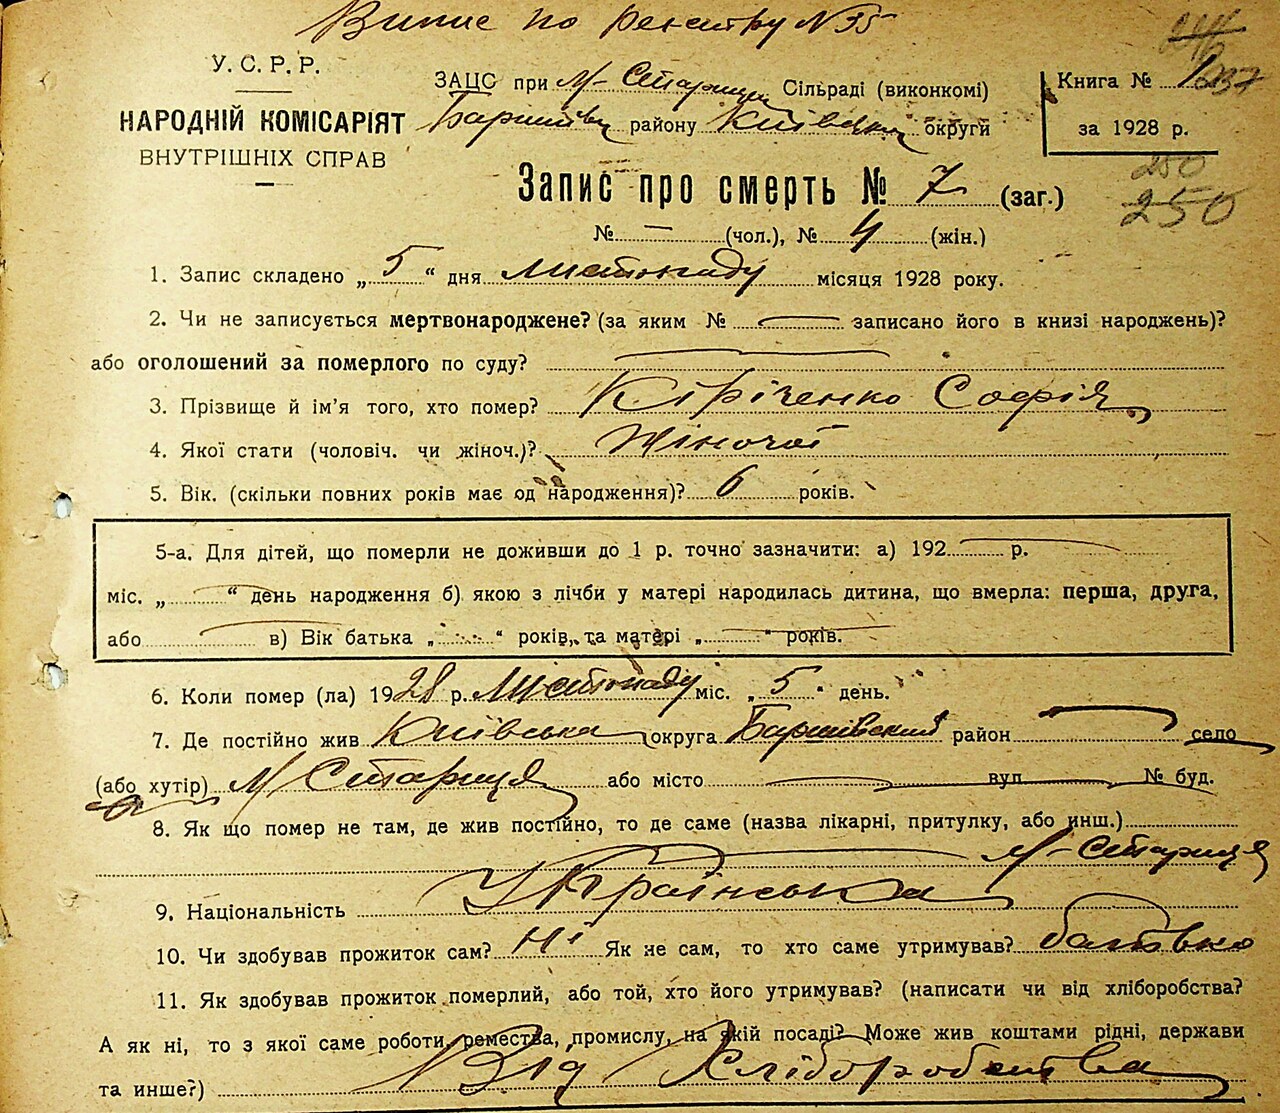 Випис по реєстру № 35
У. С. Р. Р.
НАРОДНІЙ КОМІСАРІЯТ
ВНУТРІШНІХ СПРАВ
ЗАЦС при М-Стариця Сільраді (виконкомі)
району Київської округи
Книга №
за 1928 р.
250
250
Запис про смерть № 7 (заг.)
№ — (чол.), № 4 (жін.)
1. Запис складено „ 5 “ дня листопаду місяця 1928 року.
2. Чи не записується мертвонароджене? (за яким № — записано його в книзі народжень)?
або оголошений за померлого по суду? —
3. Прізвище й ім’я того, хто помер? Кіріченко Софія
4. Якої стати (чоловіч. чи жіноч.)? Жіночої
5. Вік. (скільки повних років має од народження)? 6 років.
5-а. Для дітей, що померли не доживши до 1 р. точно зазначити: а) 192 — р.
міс. „ — “ день народження б) якою з лічби у матері народилась дитина, що вмерла: перша, друга,
або — в) Вік батька „ “ років, та матері „ — “ років.
6. Коли помер (ла) 1928 р. Листопаду міс. „ 5 “ день.
7. Де постійно жив Київська округа Баришівский район — село
(або хутір) М Стариця або місто — вул — № буд.
8. Як що помер не там, де жив постійно, то де саме (назва лікарні, притулку, або инш.)
М-Стариця
9. Національність Українська
10. Чи здобував прожиток сам? Ні Як не сам, то хто саме утримував? батько
11. Як здобував прожиток померлий, або той, хто його утримував? (написати чи від хліборобства?
А як ні, то з якої саме роботи, ремества, промислу, на якій посаді? Може жив коштами рідні, держави
та инше?) Від Хліборобства